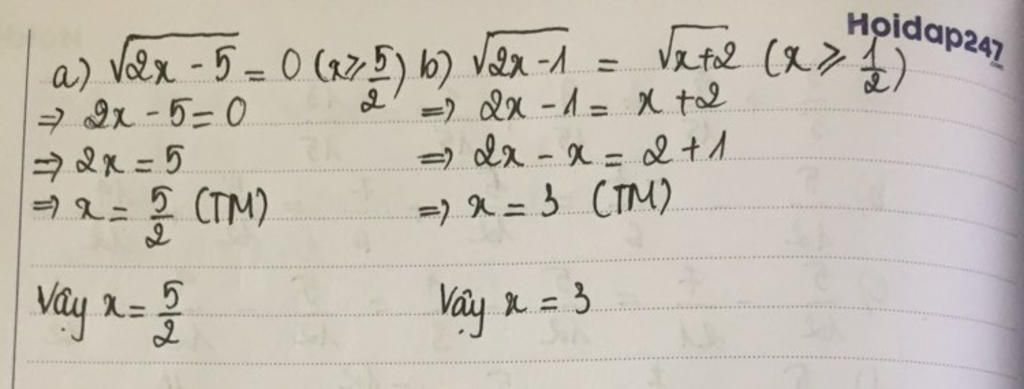 Hoidap247
a) √(2x - 5) = 0 (x ≥ 5/2)
⇒ 2x - 5 = 0
⇒ 2x = 5
⇒ x = 5/2 (TM)
Vậy x = 5/2
b) √(2x - 1) = √(x + 2) (x ≥ 1/2)
⇒ 2x - 1 = x + 2
⇒ 2x - x = 2 + 1
⇒ x = 3 (TM)
Vậy x = 3